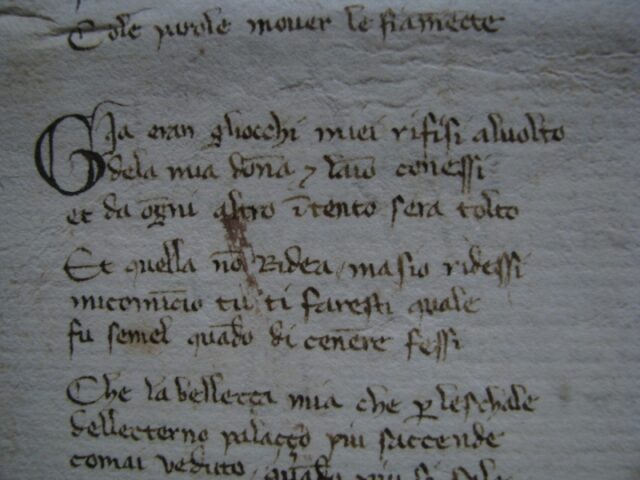 Cole parole mouer le fiam̅ecte
Gia eran gliocchi miei rifisi aluolto
dela mia don̅a ⁊ laio̅ cenessi
et da og̅ni altro i̅tento sera tolto
Et quella no̅ Ridea masio ridessi
micomi̅cio tu ti faresti quale
fu semel qua̅do di cen̅ere fessi
Che la bellecça mia che ꝑ leschale
dellecterno palaçço piu saccende
comai veduto qua̅do piu si sale